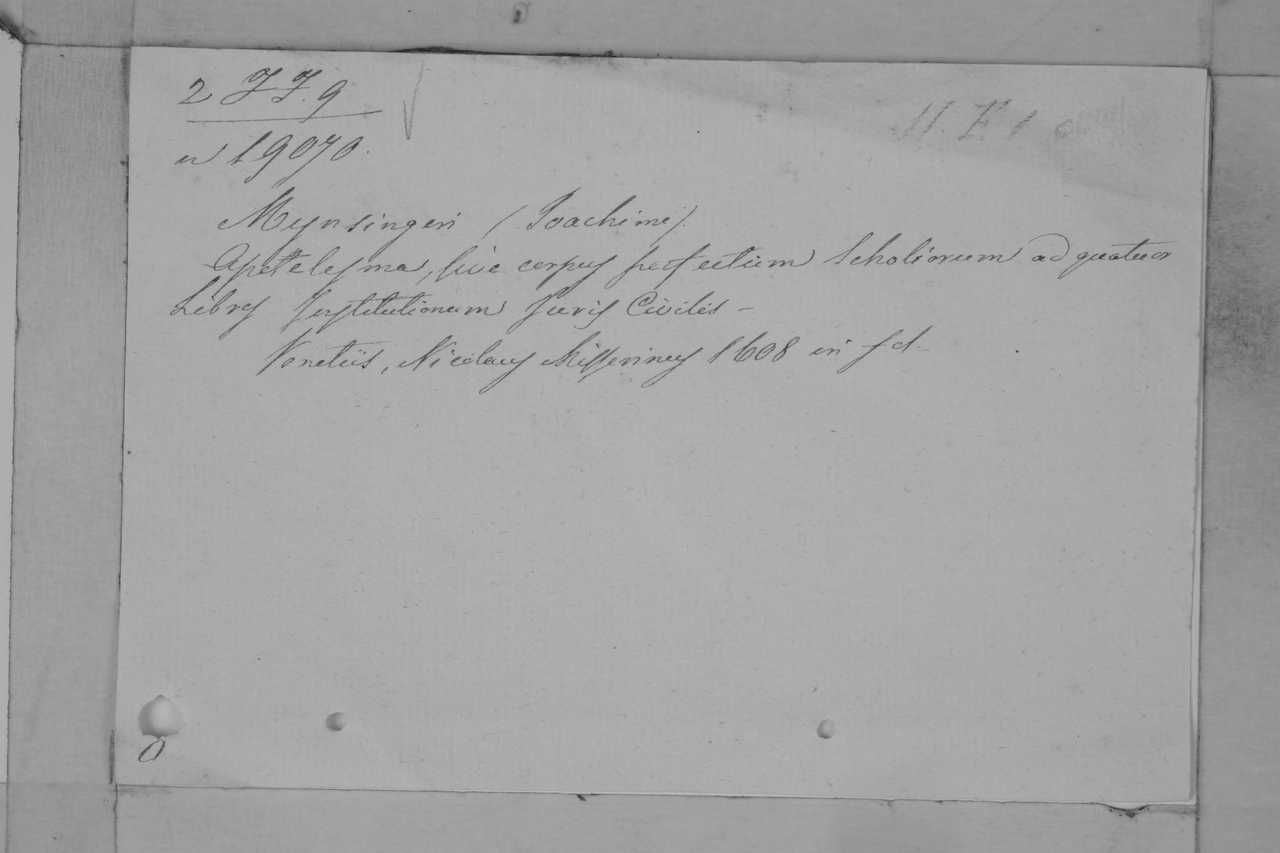 2 J J. 9
n 19070.
Mynsingeri (Joachimi)
Apotelesma, sive corpus perfectum Scholiorum ad quatuor
Libros Institutionum Juris Civilis -
Venetiis, Nicolaus Misserinus 1608 in fol.